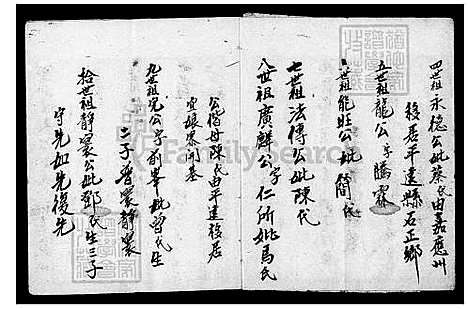 四世祖永穩公妣蔡氏由嘉應州
移居平遠縣石正鄉
五世祖龍公字騰霖
世祖能旺公妣簡氏
七世祖法傳公妣陳氏
八世祖廣鱗公字仁所妣馬氏
公偕母陳氏由平遠移居
開基
九世祖 公字前峯妣曾氏生
二子 寰靜寰
拾世祖靜寰公妣鄧氏生三子
守先如先復先
FamilySearch